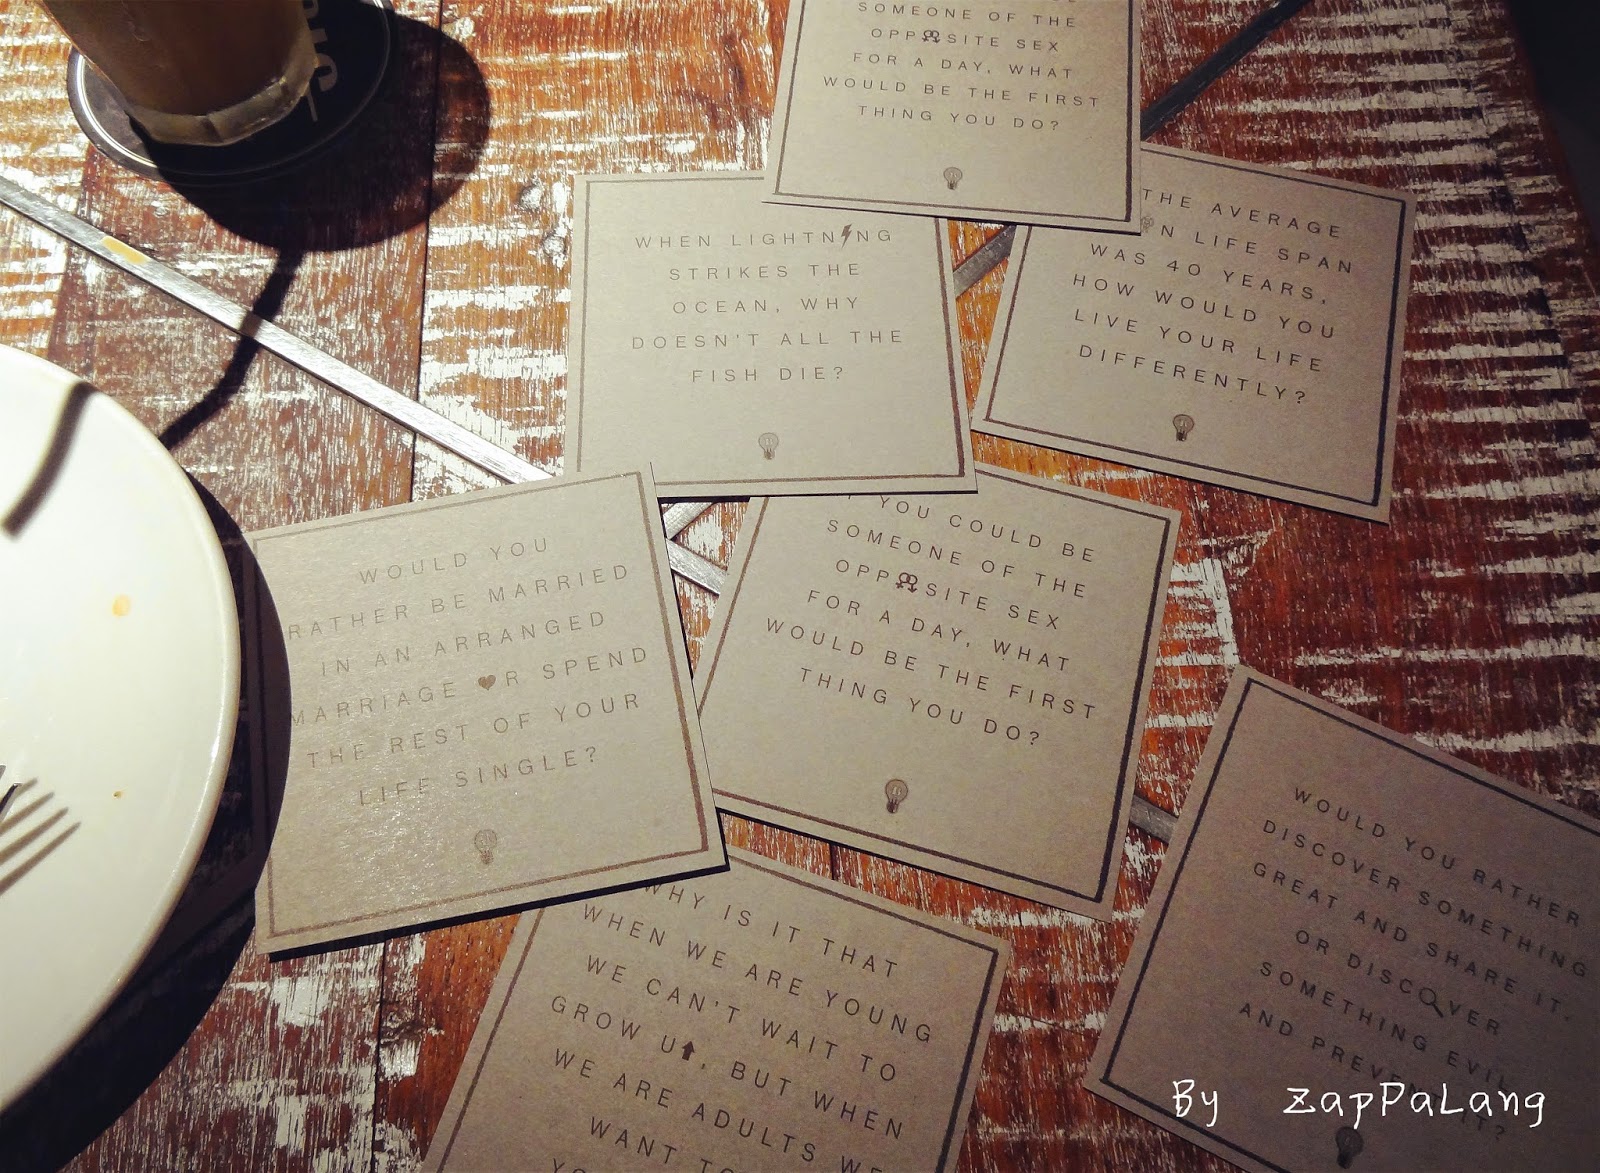 SOMEONE OF THE
OPPOSITE SEX
FOR A DAY, WHAT
WOULD BE THE FIRST
THING YOU DO?
WHEN LIGHTNING
STRIKES THE
OCEAN, WHY
DOESN'T ALL THE
FISH DIE?
THE AVERAGE
LIFE SPAN
WAS 40 YEARS,
HOW WOULD YOU
LIVE YOUR LIFE
DIFFERENTLY?
WOULD YOU
RATHER BE MARRIED
IN AN ARRANGED
MARRIAGE OR SPEND
THE REST OF YOUR
LIFE SINGLE?
YOU COULD BE
SOMEONE OF THE
OPPOSITE SEX
FOR A DAY, WHAT
WOULD BE THE FIRST
THING YOU DO?
WHY IS IT THAT
WHEN WE ARE YOUNG
WE CAN'T WAIT TO
GROW UP, BUT WHEN
WE ARE ADULTS WE
WANT TO
WOULD YOU RATHER
DISCOVER SOMETHING
GREAT AND SHARE IT,
OR DISCOVER
SOMETHING EVIL
AND PREVENT IT?
By ZapPaLang